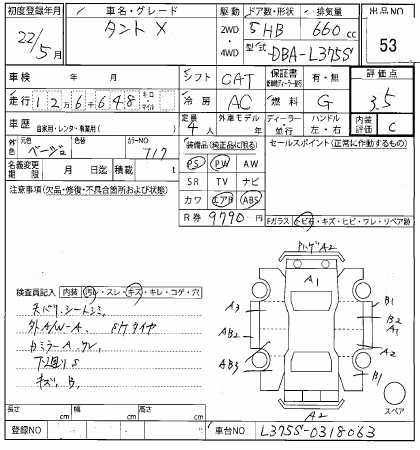 初度登録年月 車名・グレード 駆動 ドア数・形状 排気量 出品NO
22/5月 タント X 2WD 4WD 5HB 660cc 53
型式 DBA-L375S
車検 年 月 シフト CAT 保証書 有・無 評価点
走行 126648 キロ・マイル 冷房 AC 燃料 G 3.5
車歴 自家用・レンタ・事業用( ) 定員 4人 外車モデル 年 ディーラー・並行 ハンドル 左・右 内装評価 C
外色 元色 ベージュ 色替 カラーNO T17
装備品(純正品に限る) セールスポイント(正常に作動するもの)
名義変更期限 月 日迄 積載 t
PS PW AW
SR TV ナビ
カワ エアB ABS
R券 9790円
注意事項(欠品・修復・不具合箇所および状態)
Fガラス ヒビ石・キズ・ヒビ・ワレ・リペア跡
バンパゲ A2
A1
A3 B1
B2
A1
AB2
A2
AB3 B1
A2
スペア
検査員記入 内装 汚レ・スレ・キズ・キレ・コゲ・穴
天バリ、シートシミ
外A/W-A
ミラーA
下廻りS
キズ、B
長さ cm 幅 cm 高さ cm
登録NO 車台NO L375S-0318063